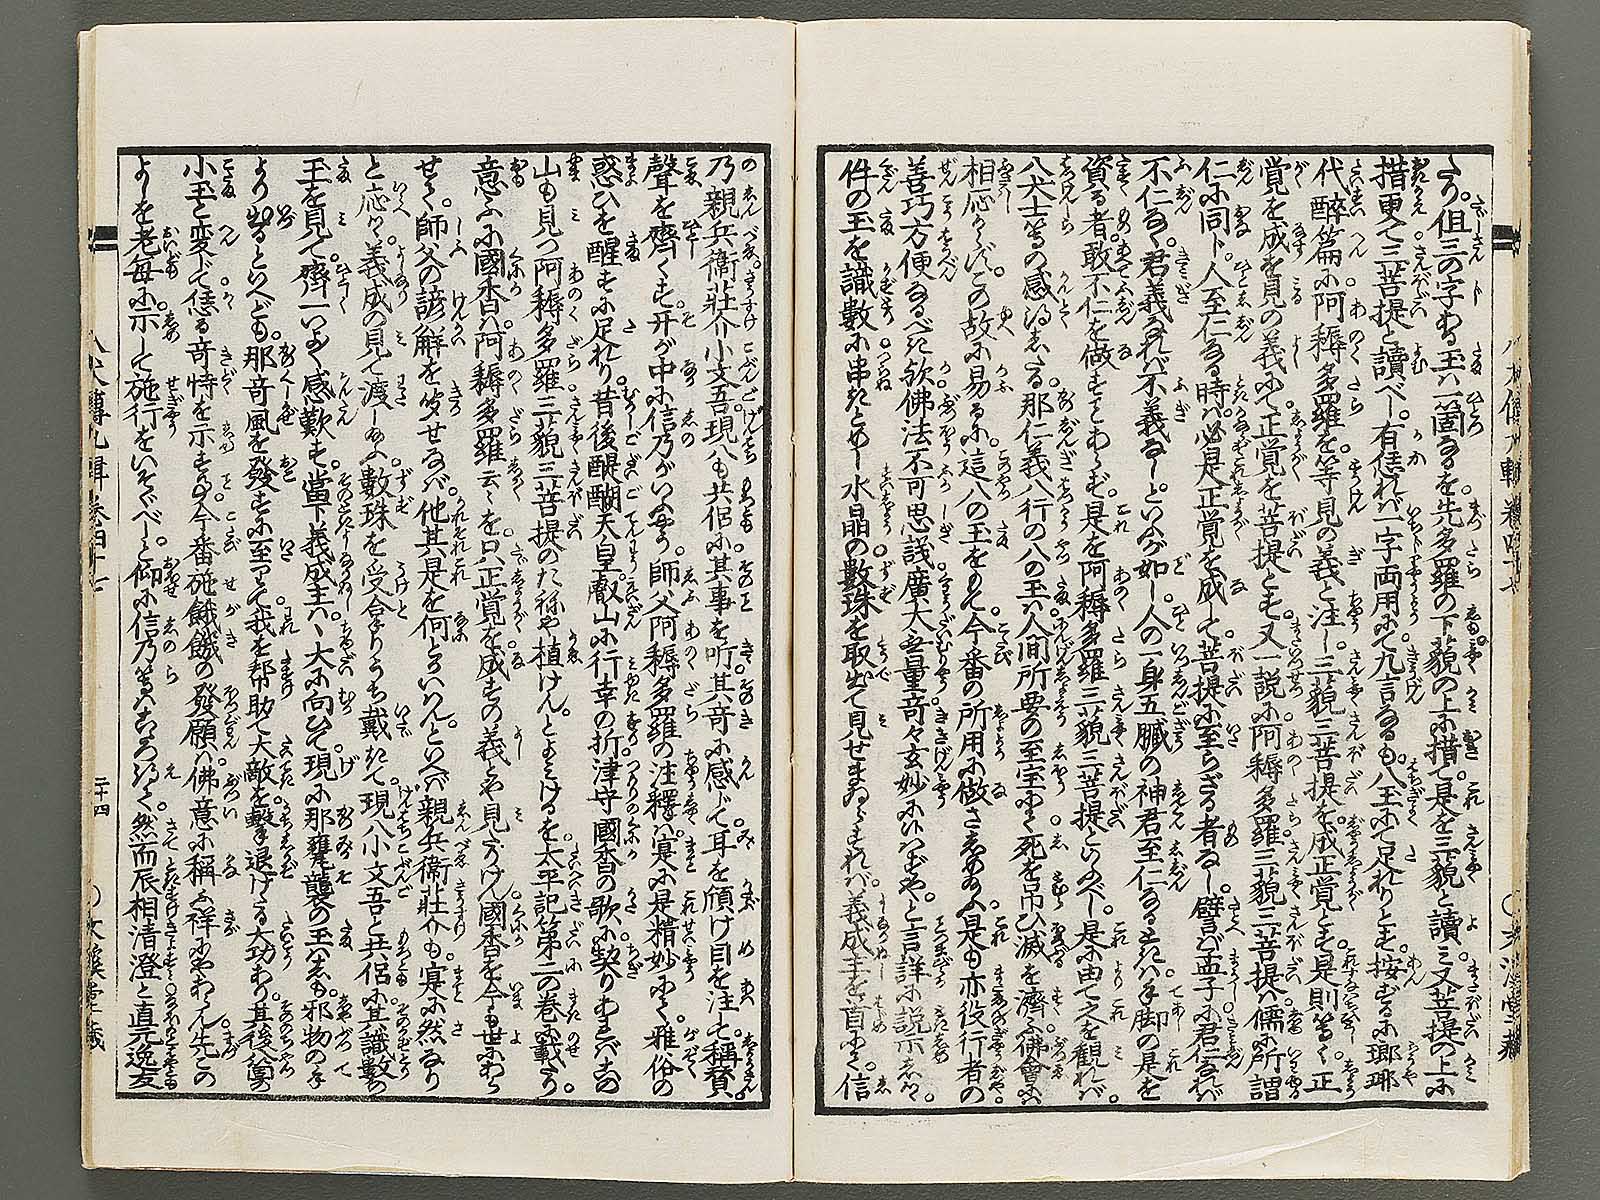 たり。但三の字ある玉は一箇なるを先多羅の下藐の上に措て是を三藐と讀み又菩提の上に
措更て三菩提と讀べし。有恁れば一字両用にて九言なるも。八玉にて足れりとす。按ずるに瑯耶
代醉篇に阿耨多羅を等見の義と注し三藐三菩提を。成正覚とす。是則等く。正
覚を成を見の義にて正覚を菩提とす。又一説に阿耨多羅三藐三菩提は儒に所謂
仁に同じ。人至仁なる時は。必是正覚を成して菩提に至らざる者なし。譬ば孟子に君仁なれば
不仁なく君義なれば不義なしといふが如し。人の一身五臓の神君至仁なるときは手脚の是を
資る者。敢不仁を做すことあらず。是を阿耨多羅三藐三菩提といふべし。是に由て之を観れば。
八犬士等の感得したる那仁義八行の八の玉は。人間所要の至宝にて死を吊ひ滅を濟ふ佛會に
相応からず。この故に易るに這八の玉をもて今番の所用に做させ給ふ是も亦役行者の
善巧方便なるべき歟佛法不可思議廣大無量奇々玄妙にいはずや。と言詳に説示しつゝ。
件の玉を識數に串きとめし水晶の數珠を取出て見せまゐらすれば。義成主を首にて。信
乃親兵衛莊介小文吾。現八も共侶に其事を听其奇に感じて耳を傾け目を注して。稱賛の
聲を齊くす。开が中に信乃がいふやう。師父阿耨多羅の注釋は。寔に是精妙にて。雅俗の
惑ひを醒すに足れり。昔後醍醐天皇。叡山に行幸の折津守國香の歌に。契りあればこの
山も見つ阿耨多羅三藐三菩提のたねや植けん。とよみけるを太平記第二の巻に載たり。
意ふに國香は。阿耨多羅云々を只正覚を成すの義とや見つらけん國香を今も世にあら
せて。師父の諺解を聞せなば。他其是を何とかいはん。といへば親兵衛莊介も。寔に然なり
と応へ。義成の見て渡し給ふ數珠を受合りうち戴きて。現八小文吾と共侶に其識數の
玉を見て。齊一いよゝ感歎す。當下義成主は、大に向ひて。現に那甕襲の玉はしも。邪物の手
より出るといへども。那奇風を發すに至て我を帮助て大敵を撃退けたる大功あり。其後箇の
小玉と変じて恁る奇特を示すもの。今番施餓饑の發願は。佛意に稱ふ祥にやあらん。先この
よしを老母に。示して施行をいそぐべし。と仰に信乃等はこゝろ得て。然而辰相清澄と直元逸友
八犬傳九輯 卷四十七
二十四
○文溪堂藏